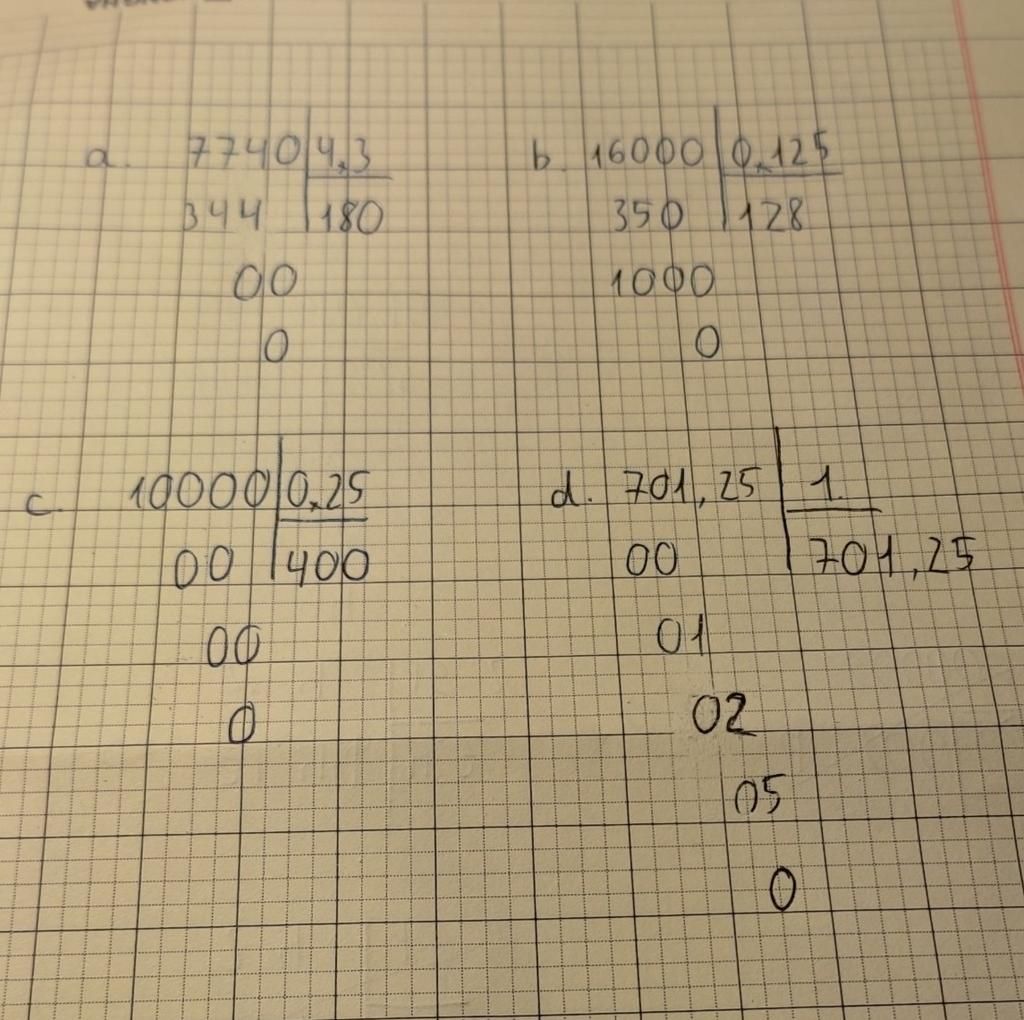 a. 7740 4,3
344 180
00
0
b. 16000 0,125
350 128
1000
0
c. 10000 0,25
00 400
00
0
d. 701,25 1
00 701,25
01
02
05
0